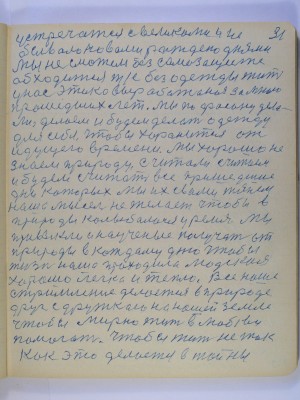 31
встречатся с великами и не
бывало новыми рожденоднями
Мы не сможем без самозащиты
обходится т/к без одежды жить
у нас этого выработаная за много
прошедших лет. Мы по прошому дела
ли, делаем и будем делат одежду
для себя, чтобы хоронится от
идущего времени. Мы хорошо не
знаем природу, считали считаем
и будем считать все пришедшие
дни которых мы их своими
наша мысел не желает чтобы в
природы колыбалося время. Мы
привыкли и научены получат от
природы в кождому дню чтобы
жизн наша проходила людьская
хорошо легко и тепло, Все наше
стримление делается в природе
друг с дружкаю на нашей земле
чтобы мирно жит в любви
помогат. Чтобы жит не так
как это делается в тайны